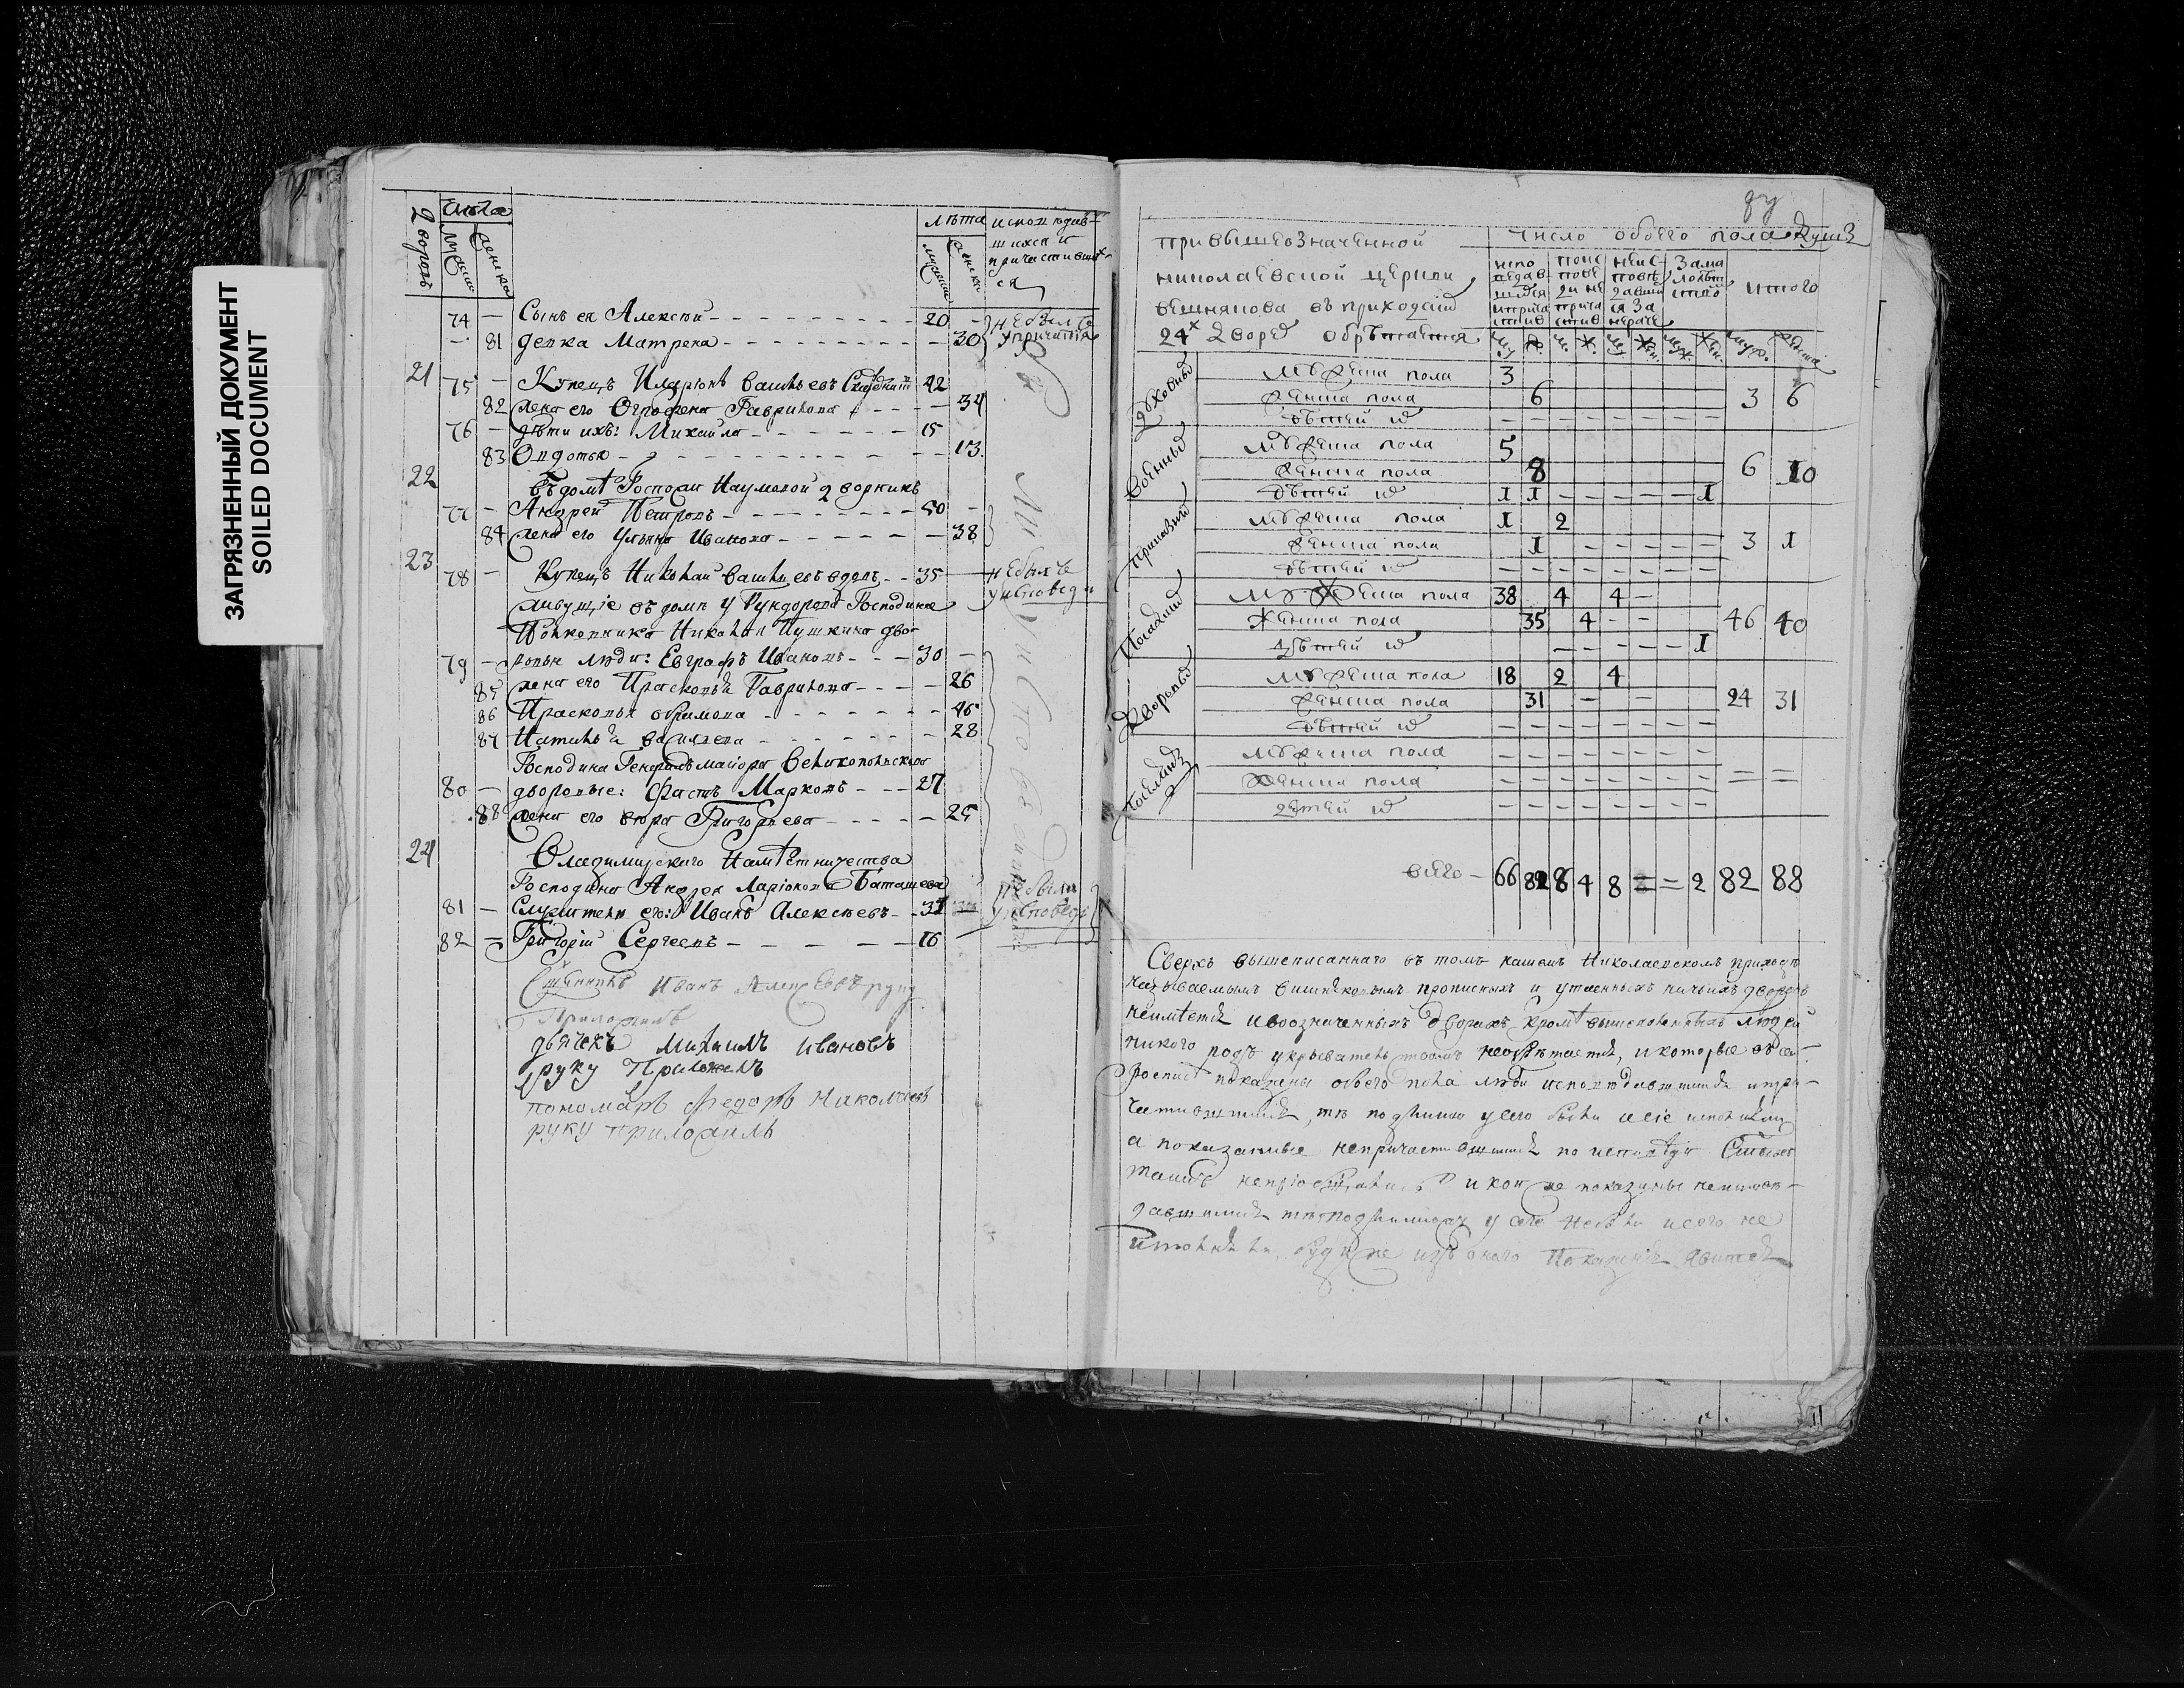 ЗАГРЯЗНЕННЫЙ ДОКУМЕНТ
SOILED DOCUMENT
дворовъ
числа
мужска
женска
лѣта
мужска
женска
исповѣдав
шихся и
причастивших
ся
74 — Сынъ ея Алексѣй — 20 —
— 81 девка Матрена — 30
не были с
у причастія
21
75 — Купецъ Иларіонъ Васильевъ 42
82 жена его Огрофена Гаврилова — 34
76 — дѣти ихъ: Михайла — 15
83 Овдотья — 13
22
Въ домѣ Госпожи Наумовой дворникъ
77 — Андрей Петровъ — 50 —
84 жена его Ульяна Иванова — 38
23
78 — Купецъ Николай Васильевъ вдовъ — 35
не былъ
у исповеди
живущіе въ домѣ у Господина
Полковника Николая Пушкина дво
79 — ровыя люди: Евграфъ Ивановъ — 30 —
85 жена его Прасковья Гаврилова — 26
86 Прасковья Ефимова — 46
87 Наталья Васильева — 28
Господина Генералъ маіора Великопольскаго
80 — дворовые: Фастъ Марковъ — 27
88 жена его Вѣра Григорьева — 25
24
Владимирскаго Наместничества
Господина Андрея Ларіонова Баташева
81 — Служители его: Иванъ Алексѣевъ — 37
не были
у исповеди
82 — Григорій Сергеевъ — 16
Сщенникъ Иванъ Алексѣевъ руку
Приложилъ
дьячекъ Михаилъ Ивановъ
руку Приложилъ
пономарь Федоръ Николаевъ
руку приложилъ
При вышеозначенной
николаевской церкви
вешнякова въ приходѣ
24х дворѣ обрѣтается
число обоего пола душъ
испо
ведав
шихся
и прича
стив
поис
пове
ди не
прича
стив
неис
повѣ
давши
ся за
нераче
за ма
лолѣт
ство
итого
м. ж. м. ж. м. жен. муж. жен. муж. женска
Духовныхъ
мужеска пола 3
женска пола 6
3 6
дѣтей ихъ — — — — — — — —
Военныхъ
мужеска пола 5
женска пола 8
6 10
дѣтей ихъ 1 1 — — — — — 1
Приказныхъ
мужеска пола 1 2
женска пола 1 — — — — —
3 1
дѣтей ихъ — — — — — — — —
Посадскихъ
мужеска пола 38 4 4 —
женска пола 35 4 — —
46 40
дѣтей ихъ — — — — 1
Дворовыхъ
мужеска пола 18 2 4
женска пола 31 — — — —
24 31
дѣтей ихъ — — — — — — — —
Поселянъ
мужеска пола — — — — — — — —
женска пола — — — — — — — —
= =
детей ихъ — — — — — — — —
всего — 66 8 4 8 = = 2 82 88
Сверхъ вышеписаннаго въ томъ нашемъ Николаевскомъ приходѣ
называемымъ прописныхъ и утаенныхъ ничьихъ дворовъ
неимѣется и в означенныхъ дворахъ кромѣ людей
никого подъ укрывательствомъ необрѣтается, и которые въ сей
росписи показаны обоего пола люди исповѣдавшимися и при
частившимися, тѣ подлинно у сего были и сіе исполнили
а показанные непричастившимися по исповѣди Святыхъ
таинъ непріобщались и кои же показаны неисповѣ
давшимися тѣ подлинно у сего не были и сего не
исполнили, буде же изъ онаго показанія явится